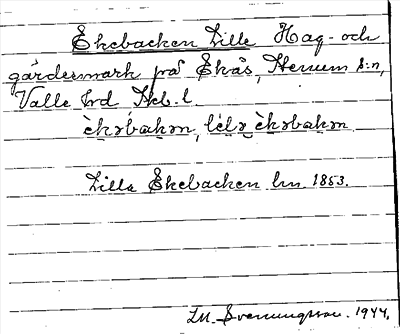 Ekebacken Lille Hag- och
gärdesmark på Ekås, Stenum s:n,
Valle hrd Skb. l.
èkəbakən, lilə èkəbakən
Lilla Ekebacken lm 1853.
LM. Svenungsson. 1944.